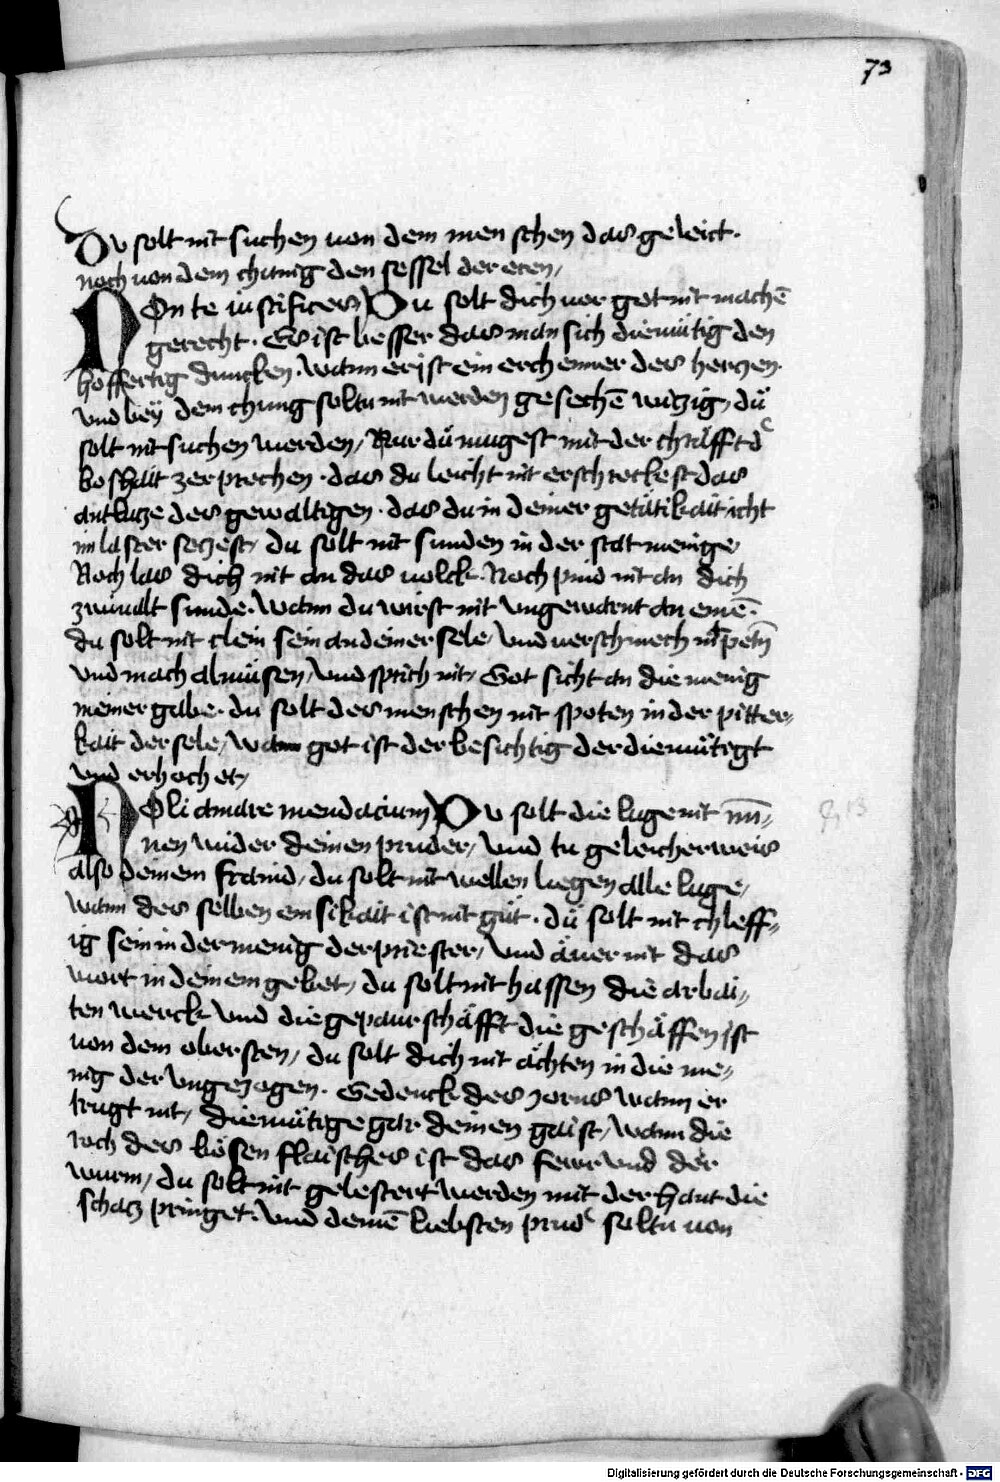 73
Du solt nit suchen von dem menschen das geleict.
noch von dem chunig den sessel der eren/
Non te iustifices Du solt dich vor got nit machē
gerecht. Es ist besser das man sich diemütig den
hoffertig duncken. wann er ist ein erchenner des herczen.
vnd bey dem chunig soltu nit werden gesechē wiczig, du
solt nit suchen werden, Nur du mugest mit der chräfft d
boshait zerprechen. das du leicht nit erschrockest das
antlucze des gewaltigen. das du in deiner getätikait icht
im laster seczest, du solt nit sunden in der stat menige,
Noch las dich nit an das volck. Noch pind nit an dich
zwiualt sunde. wann du wirst nit vngewarnt an einē.
du solt nit clein sein an deiner sele, vnd verschmech nit
vnd mach almüsen, vnd sprich nit, Got sicht an die menig
meiner gabe. du solt des menschen nit spoten in der pitter-
kait der sele, wann got ist der besichtig der diemütigt
vnd erhochet,
Noli amare mendacium Du solt die luge nit
nen wider deinen pruder, vnd tu geleicher weis
also deinem fraind, du solt nit wellen liegen alle luge,
wann des selben emsikait ist nit gut. du solt nit chleff-
ig sein in der menig der priester, vnd äuer nit das
wort in deinem gebet, du solt nit hassen die arbai-
ten werck vnd die gepaurschäfft die geschäffen ist
von dem obersten, du solt dich nit ächten in die me-
nig der vngezogen. Gedenck des zorns wann er
trugt nit, diemütige gar deinen gaist, wann die
rach des bösen flaisches ist das fewr vnd der
wurm, du solt nit gelestert werden mit der haut die
schacz pringet. vnd deinē liebsten prud soltu von
Digitalisierung gefördert durch die Deutsche Forschungsgemeinschaft - DFG